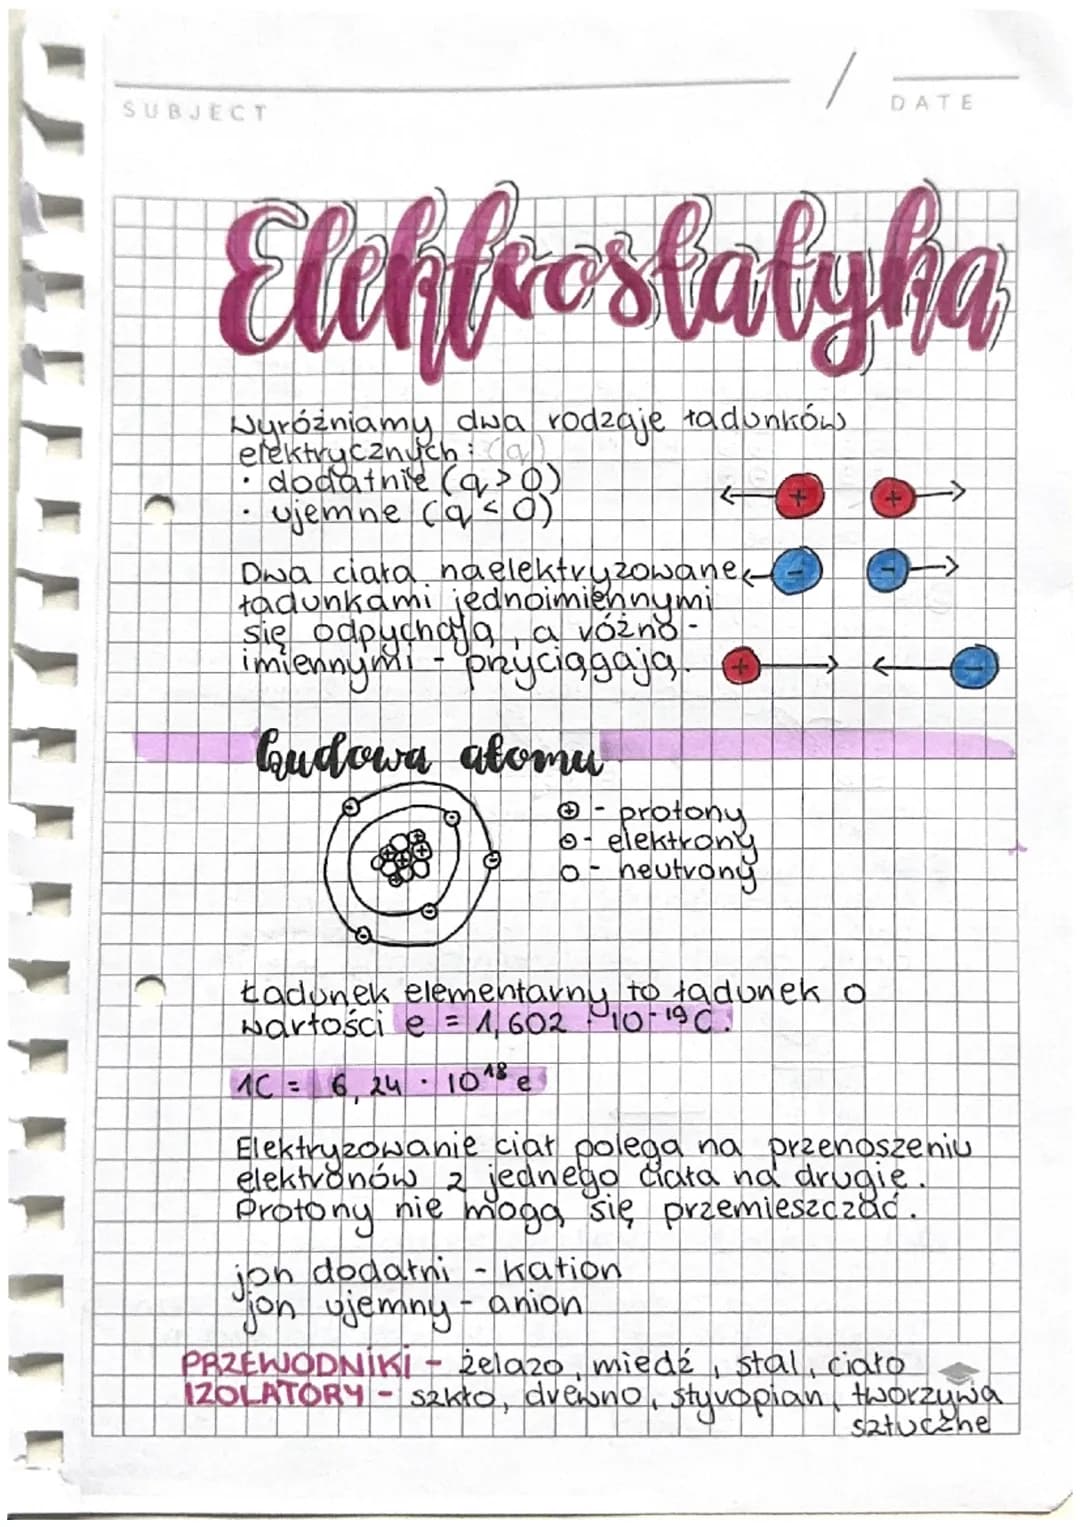 SUBJECT / DATE
Elektrostatyka
Wyróżniamy dwa rodzaje ładunków
elektrycznych: (q)
· dodatnie (q > 0)
· ujemne (q < 0)
+ +
Dwa ciała naelektryzowane
- -
ładunkami jednoimiennymi
się odpychają, a różno-
imiennymi - przyciągają.
+ -
budowa atomu
⊕ - protony
⊖ - elektrony
○ - neutrony
Ładunek elementarny to ładunek o
wartości e = 1,602 · 10⁻¹⁹ C.
1C = 6,24 · 10¹⁸ e
Elektryzowanie ciał polega na przenoszeniu
elektronów z jednego ciała na drugie.
Protony nie mogą się przemieszczać.
jon dodatni - kation
jon ujemny - anion
PRZEWODNIKI - żelazo, miedź, stal, ciało
IZOLATORY - szkło, drewno, styropian, tworzywa
sztuczne